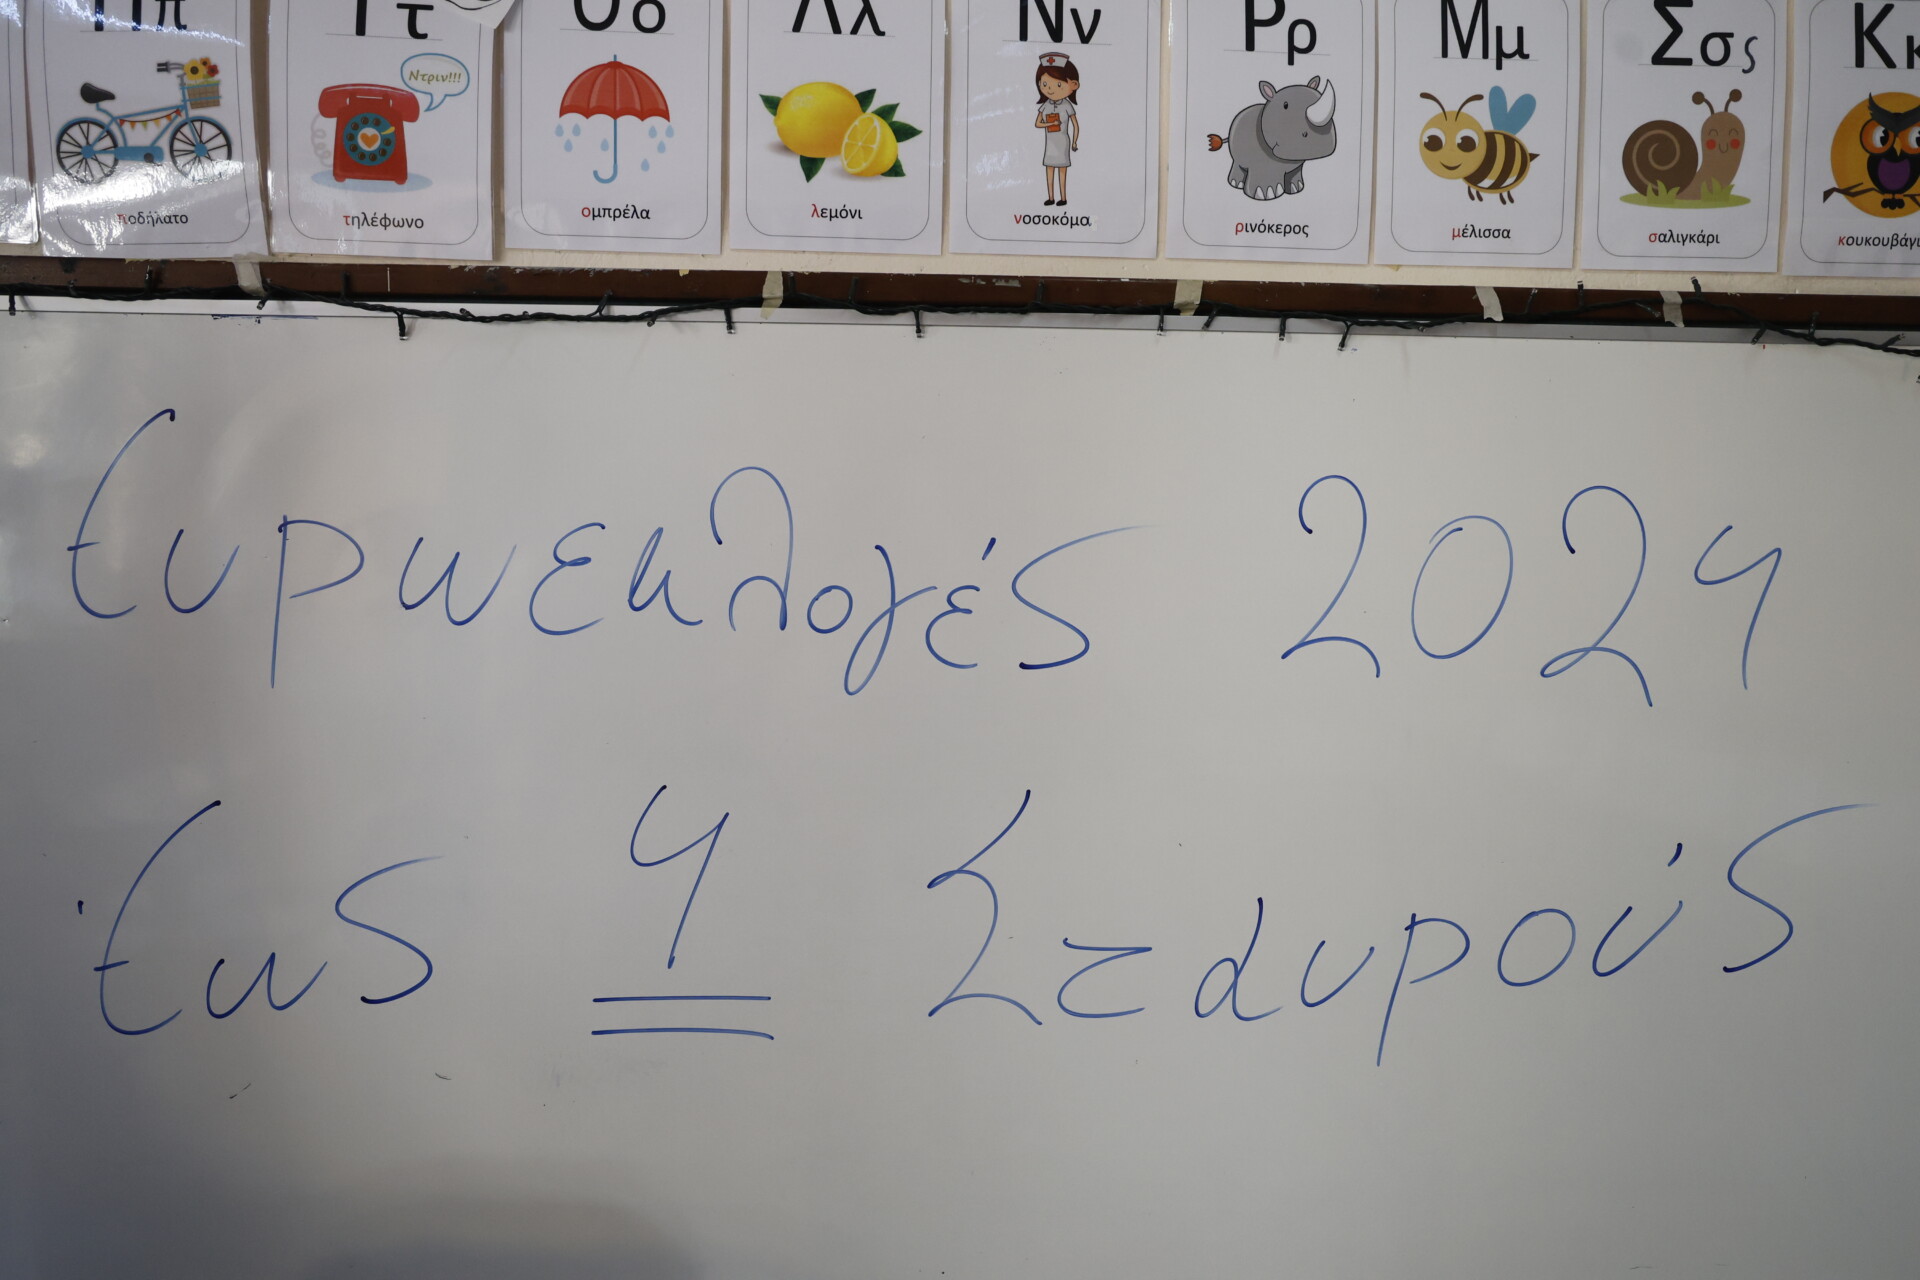 Ππ Ττ Οο Λλ Νν Ρρ Μμ Σσς Κκ
Ντριν!!!
ποδήλατο τηλέφωνο ομπρέλα λεμόνι νοσοκόμα ρινόκερος μέλισσα σαλιγκάρι
Ευρωεκλογές 2024
Έως 4 Σταυρούς